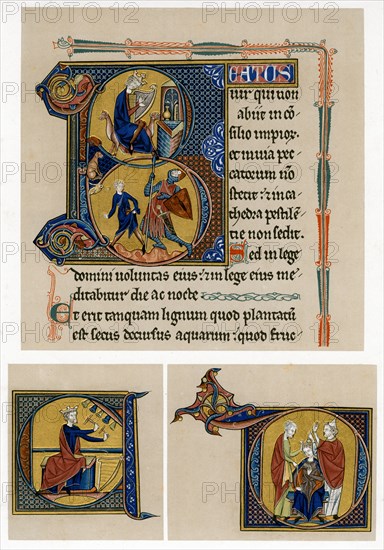 BEATUS
vir qui non
abiit in cō
silio impioꝝ.
et in via pec
catorum nō
stetit : ⁊ in ca
thedra pestilē
tie non sedit.
Sed in lege
domini voluntas eius : ⁊ in lege eius me
ditabitur die ac nocte
Et erit tanquam lignum quod plantatū
est secus decursus aquarum : quod fruc
PHOTO12